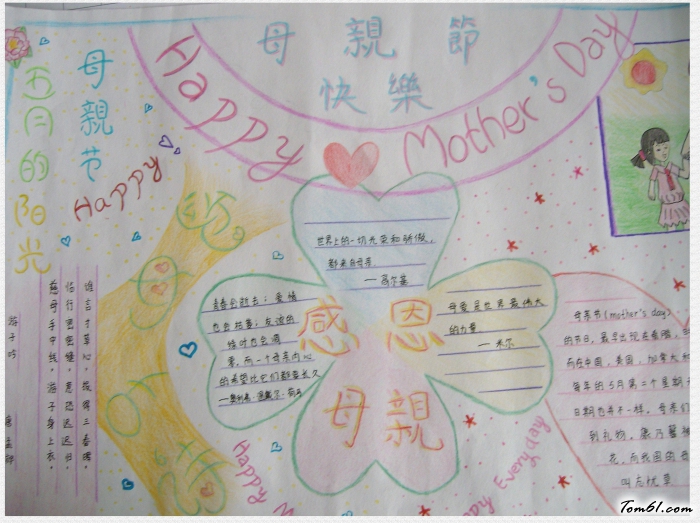 母親節
快樂
Happy Mother's Day
五月的阳光
母親节
Happy
世界上的一切光荣和骄傲,
都来自母亲
——高尔基
青春会逝去;爱情
也会枯萎;友谊的
的希望比它们都要长久
母爱是世界最伟大
的力量
——米尔
感恩
母親
游子吟
慈母手中线,游子身上衣。
临行密密缝,意恐迟迟归。
谁言寸草心,报得三春晖。
母亲节(mother's day)
的节日,最早出现在
而在中国,美国,加拿大
每年的5月第二个星期
日期也并不一样,母亲们
到礼物,康乃馨被
花,而我国的母
叫忘忧草
Happy M
Happy Everyday
Tom61.com